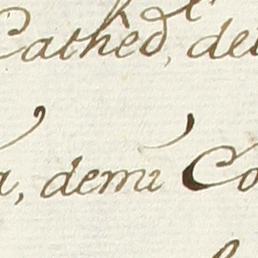 Cathêd, de
a, demi Co